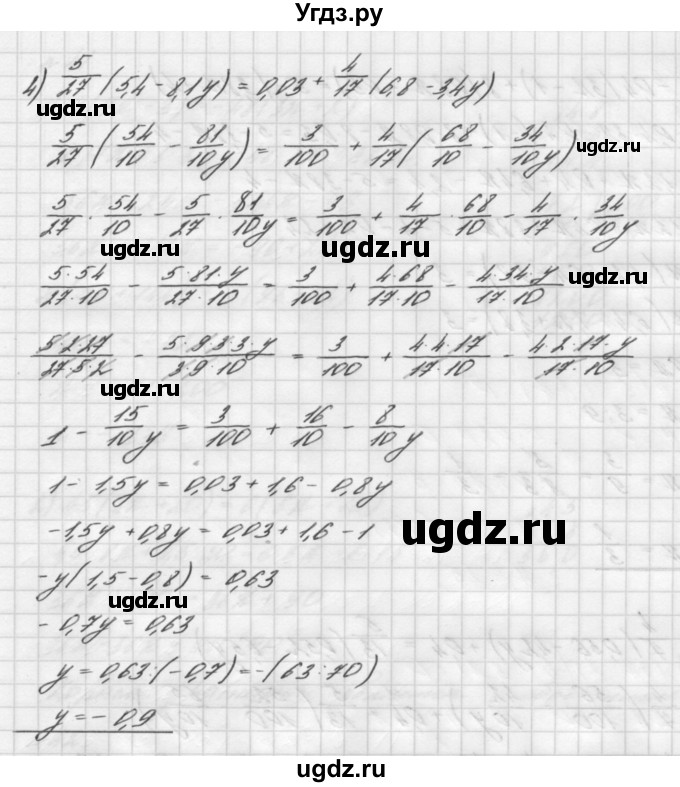 Угдз.ру
4) 5/27 (5,4 - 8,1y) = 0,03 + 4/17 (6,8 - 3,4y)
ugdz.ru
5/27 (54/10 - 81/10 y) = 3/100 + 4/17 (68/10 - 34/10 y) ugdz.ru
5/27 · 54/10 - 5/27 · 81/10 y = 3/100 + 4/17 · 68/10 - 4/17 · 34/10 y
ugdz.ru ugdz.ru
5·54/27·10 - 5·81·y/27·10 = 3/100 + 4·68/17·10 - 4·34·y/17·10 ugdz.ru
5·2·27/27·5·2 - 5·9·3·3·y/3·9·10 = 3/100 + 4·4·17/17·10 - 4·2·17·y/17·10
ugdz.ru
1 - 15/10 y = 3/100 + 16/10 - 8/10 y
1 - 1,5y = 0,03 + 1,6 - 0,8y
ugdz.ru
-1,5y + 0,8y = 0,03 + 1,6 - 1
ugdz.ru
-y(1,5 - 0,8) = 0,63
ugdz.ru
-0,7y = 0,63
y = 0,63:(-0,7) = -(63:70)
y = -0,9
ugdz.ru
ugdz.ru